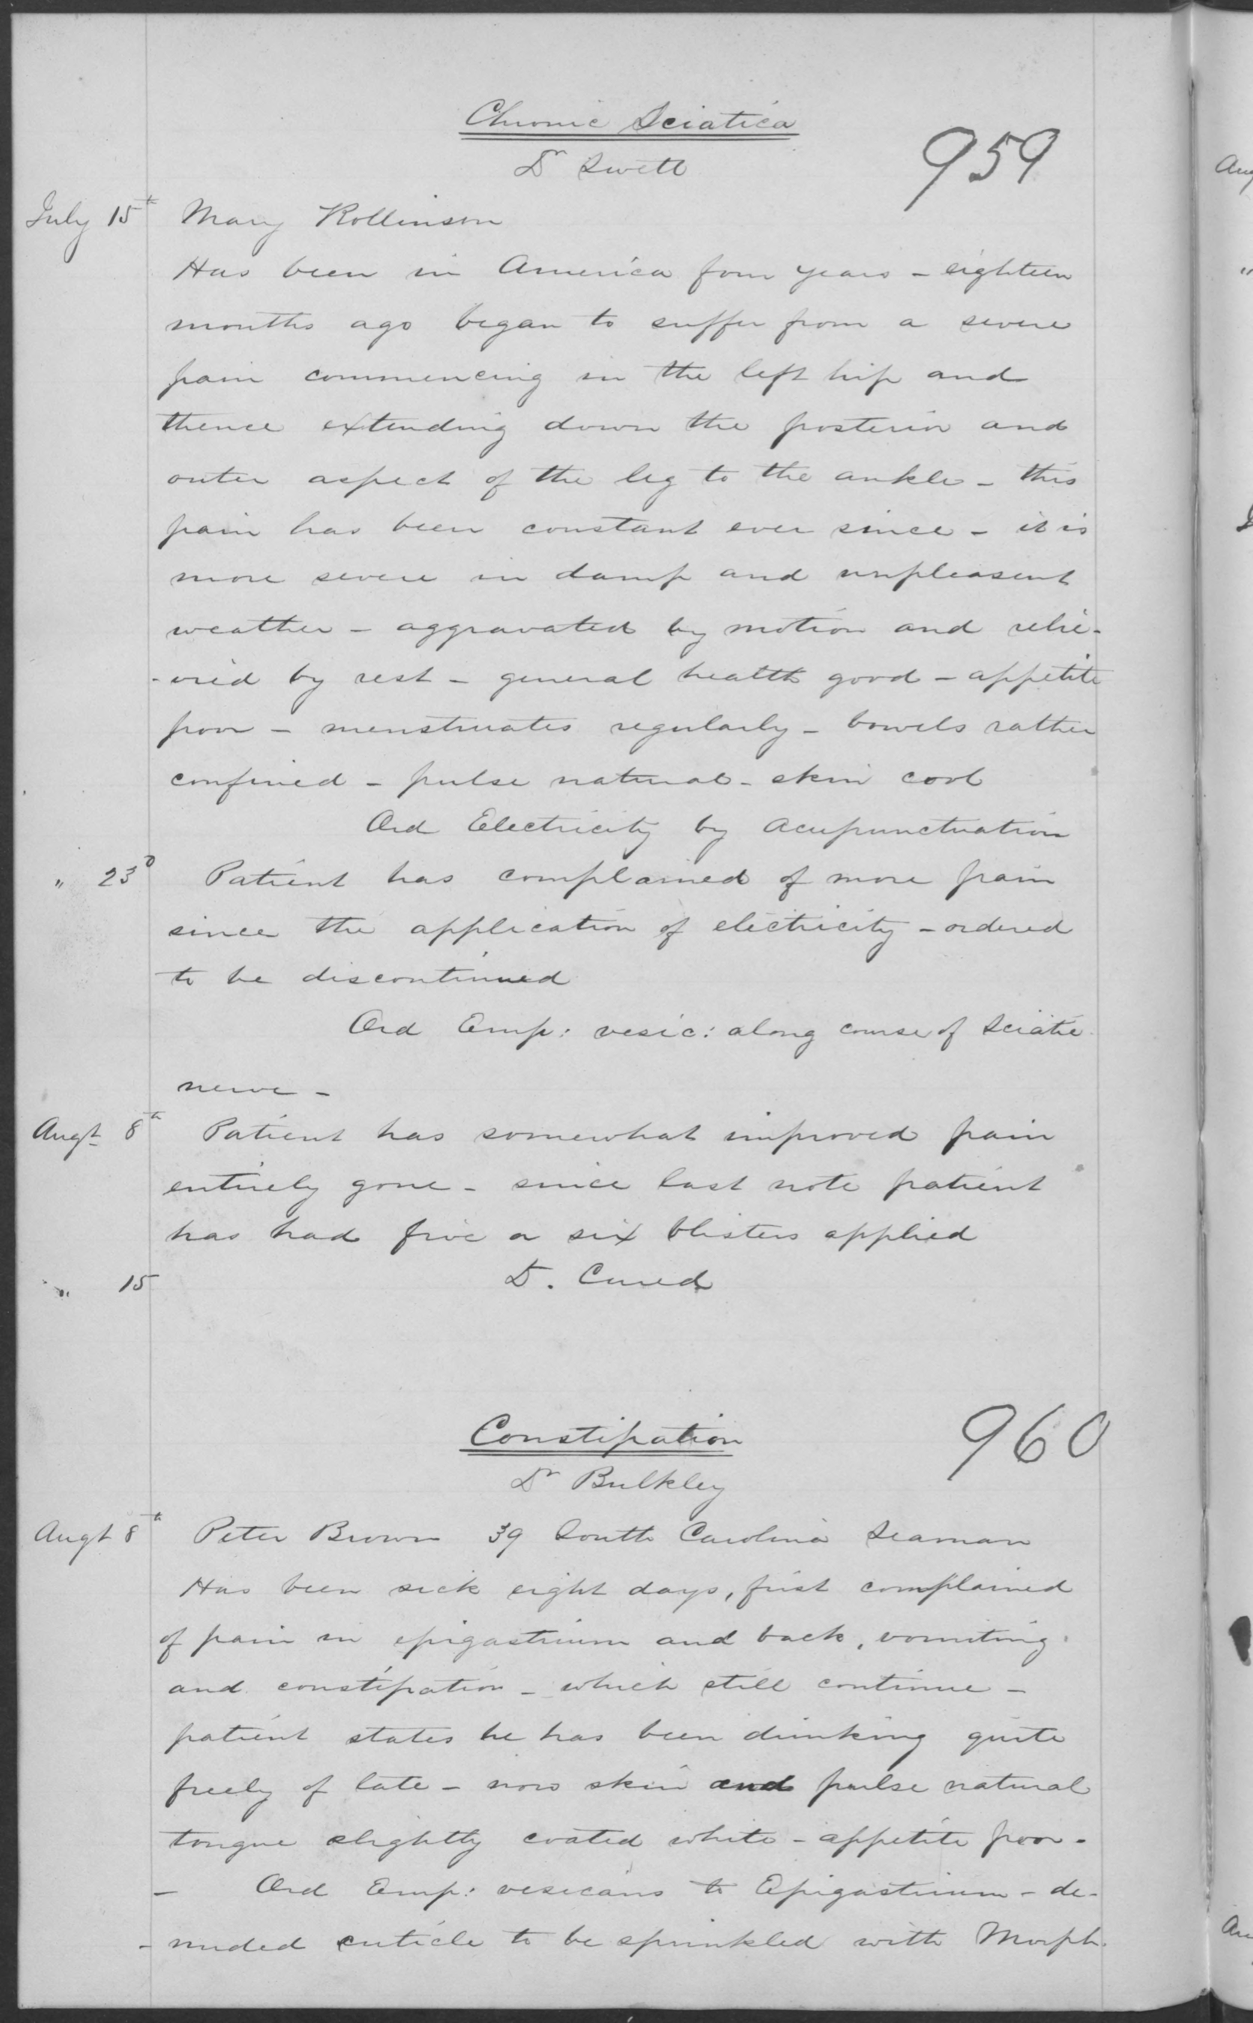 Chronic Sciatica
Dr Swett
959
July 15th Mary Rollinson
Has been in America four years - eighteen
months ago began to suffer from a severe
pain commencing in the left hip and
thence extending down the posterior and
outer aspect of the leg to the ankle - this
pain has been constant ever since - it is
more severe in damp and unpleasent
weather - aggravated by motion and relie-
-ved by rest - general health good - appetite
poor - menstruates regularly - bowels rather
confined - pulse natural - skin cool
Ord Electricity by Acupunctuation
" 23d Patient has complained of more pain
since the application of electricity - ordered
to be discontinued
Ord Emp: vesic: along course of Sciatic
nerve -
Augt 8th Patient has somewhat improved pain
entirely gone - since last note patient
has had five or six blisters applied
" 15 D. Cured
Constipation
960
Dr Bulkley
Augt 8th Peter Brown 39 South Carolina Seaman
Has been sick eight days, first complained
of pain in epigastrium and back, vomiting
and constipation - which still continue -
patient states he has been drinking quite
freely of late - now skin and pulse natural
tongue slightly coated white - appetite poor -
- Ord Emp: vesicans to Epigastrium - de-
- nuded cuticle to be sprinkled with Morph.
Aug
"